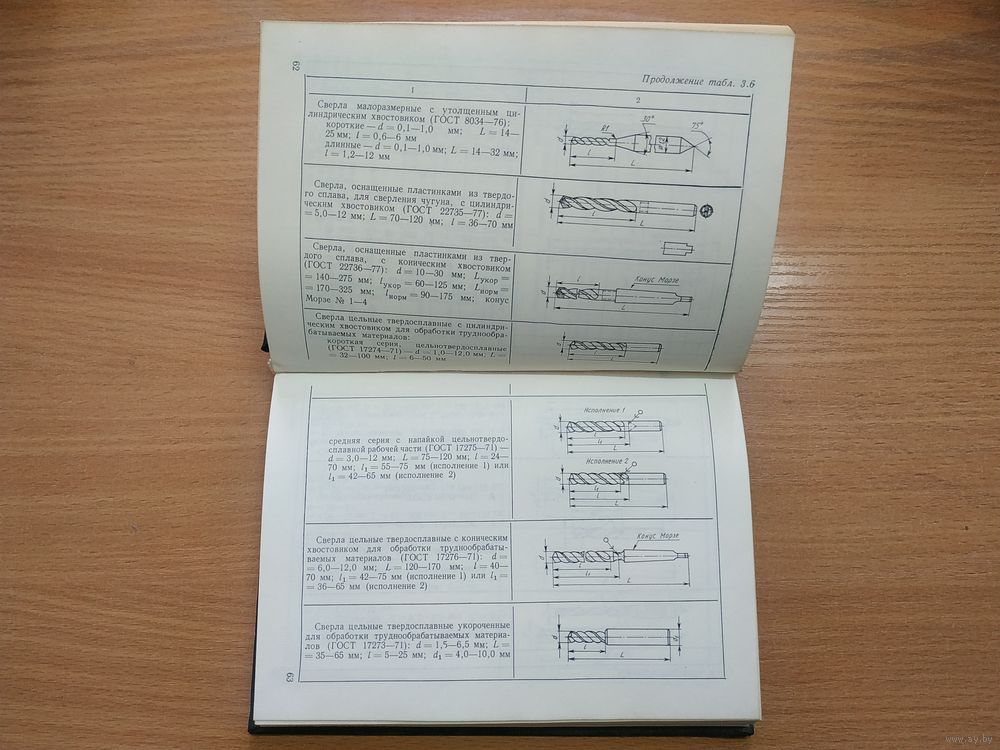 62
Продолжение табл. 3.6
1
2
Сверла малоразмерные с утолщенным ци-
линдрическим хвостовиком (ГОСТ 8034—76):
короткие — d = 0,1—1,0 мм; L = 14—
25 мм; l = 0,6—6 мм
длинные — d = 0,1—1,0 мм; L = 14—32 мм;
l = 1,2—12 мм
d
R1
30°
75°
l
L
Сверла, оснащенные пластинками из твердо-
го сплава, для сверления чугуна, с цилиндри-
ческим хвостовиком (ГОСТ 22735—77): d =
= 5,0—12 мм; L = 70—120 мм; l = 36—70 мм
d
l
L
Сверла, оснащенные пластинками из твер-
дого сплава, с коническим хвостовиком
(ГОСТ 22736—77): d = 10—30 мм; Lукор =
= 140—275 мм; lукор = 60—125 мм; Lнорм =
= 170—325 мм; lнорм = 90—175 мм; конус
Морзе № 1—4
l
Конус Морзе
d
L
Сверла цельные твердосплавные с цилиндри-
ческим хвостовиком для обработки труднообра-
батываемых материалов:
короткая серия, цельнотвердосплавные
(ГОСТ 17274—71) — d = 1,0—12,0 мм, L =
= 32—100 мм; l = 6—50 мм
d
l
L
средняя серия с напайкой цельнотвердо-
сплавной рабочей части (ГОСТ 17275—71) —
d = 3,0—12 мм; L = 75—120 мм; l = 24—
70 мм; l1 = 55—75 мм (исполнение 1) или
l1 = 42—65 мм (исполнение 2)
Исполнение 1
d
l
l1
L
Исполнение 2
d
l1
l
L
Сверла цельные твердосплавные с коническим
хвостовиком для обработки труднообрабаты-
ваемых материалов (ГОСТ 17276—71): d =
= 6,0—12,0 мм; L = 120—170 мм; l = 40—
70 мм; l1 = 42—75 мм (исполнение 1) или l1 =
= 36—65 мм (исполнение 2)
Конус Морзе
d
l
l1
L
Сверла цельные твердосплавные укороченные
для обработки труднообрабатываемых материа-
лов (ГОСТ 17273—71): d = 1,5—6,5 мм; L =
= 35—65 мм; l = 5—25 мм, d1 = 4,0—10,0 мм
d
d1
l
L
63
www.ay.by